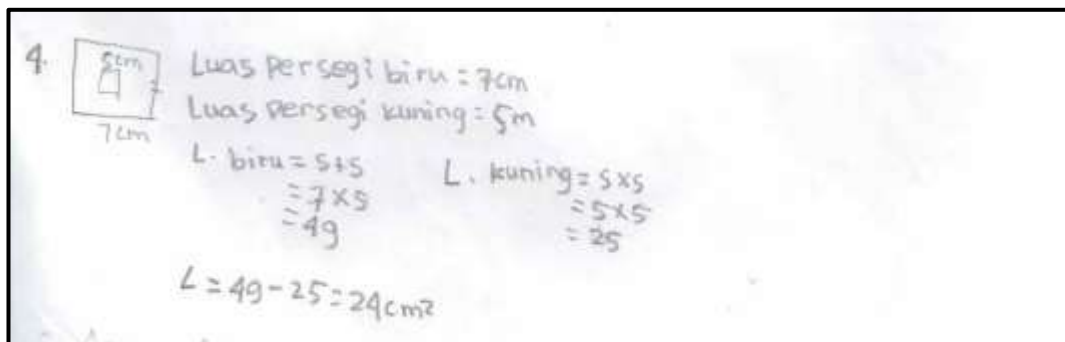 4.
5cm
7cm
Luas persegi biru = 7cm
Luas persegi kuning = 5m
L. biru = s+s
= 7×s
= 49
L. kuning = s×s
= 5×5
= 25
L = 49 - 25 = 24cm2